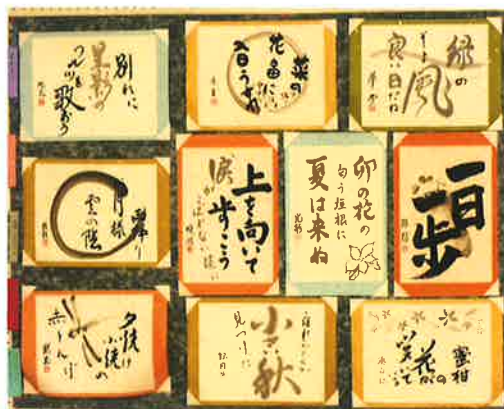 別れに
星影の
ワルツを
歌おう
菜の
花畠に
入日うすれ
緑の
そよ風
良い日だね
月様
雲の陰
上を向いて
歩こう
涙が
こぼれない様に
卯の花の
匂う垣根に
夏は来ぬ
一日一歩
夕焼け
小焼の
赤とんぼ
小さい秋
見つけた
蜜柑
の
花が
咲いて